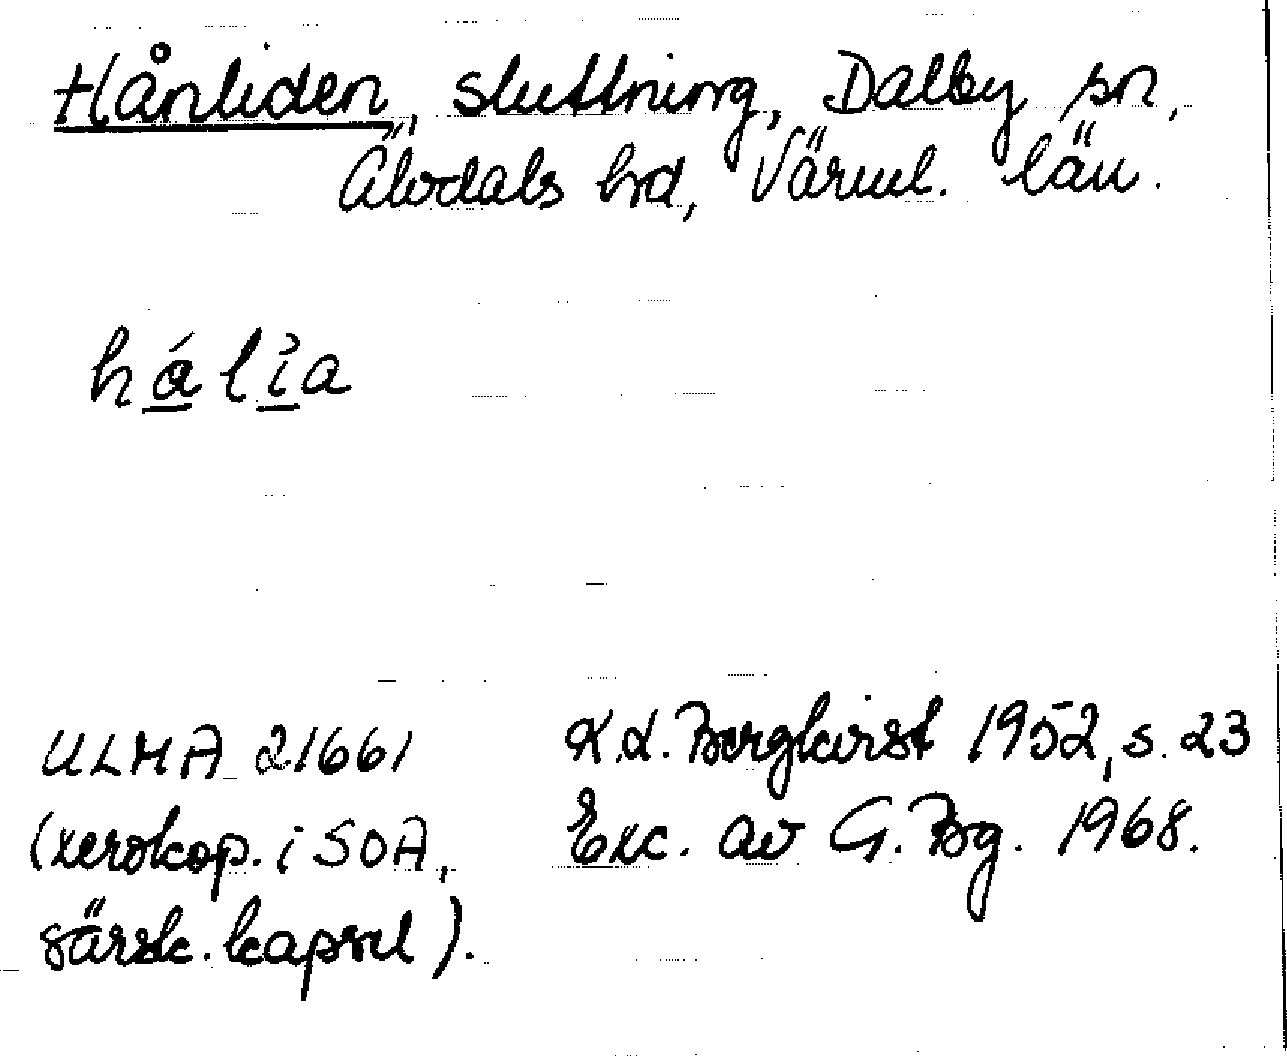 Hånliden, sluttning, Dalby sn,
Älvdals hrd, Värml. län.
hália
ULMA 21661
(xerokop. i SOA,
särsk. kapsel).
K.L. Bergkvist 1952, s. 23
Exc. av G. Bg. 1968.